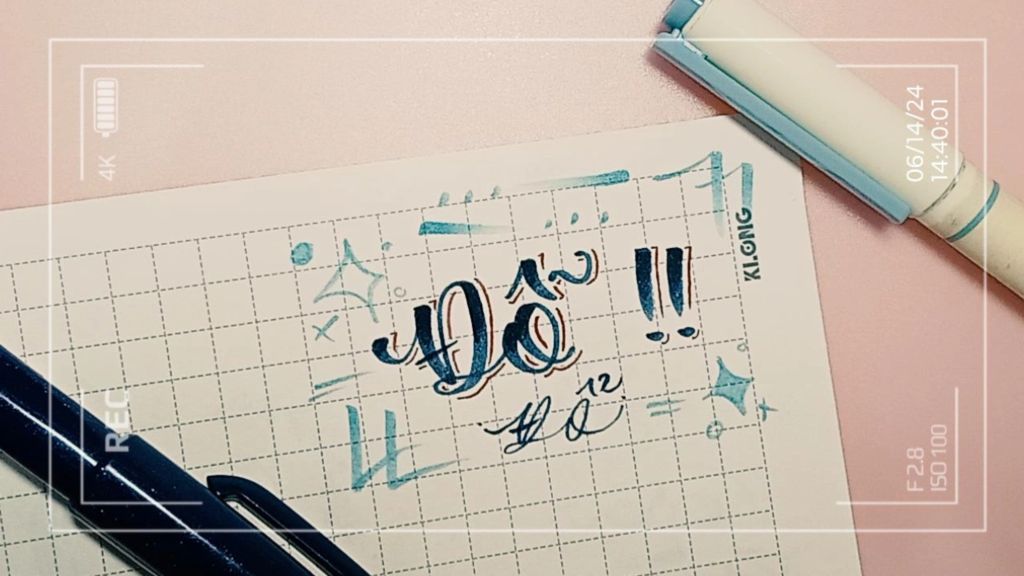 4K
06/14/24
14:40:01
KLONG
Đỗ !!
Đỗ
REC
F 2.8
ISO 100